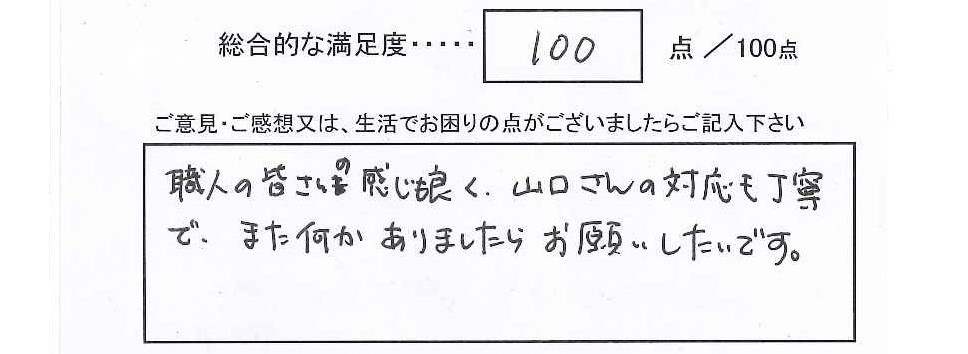 総合的な満足度・・・・・ 100 点 ／100点
ご意見・ご感想又は、生活でお困りの点がございましたらご記入下さい
職人の皆さんの感じも良く、山口さんの対応も丁寧
で、また何かありましたらお願いしたいです。